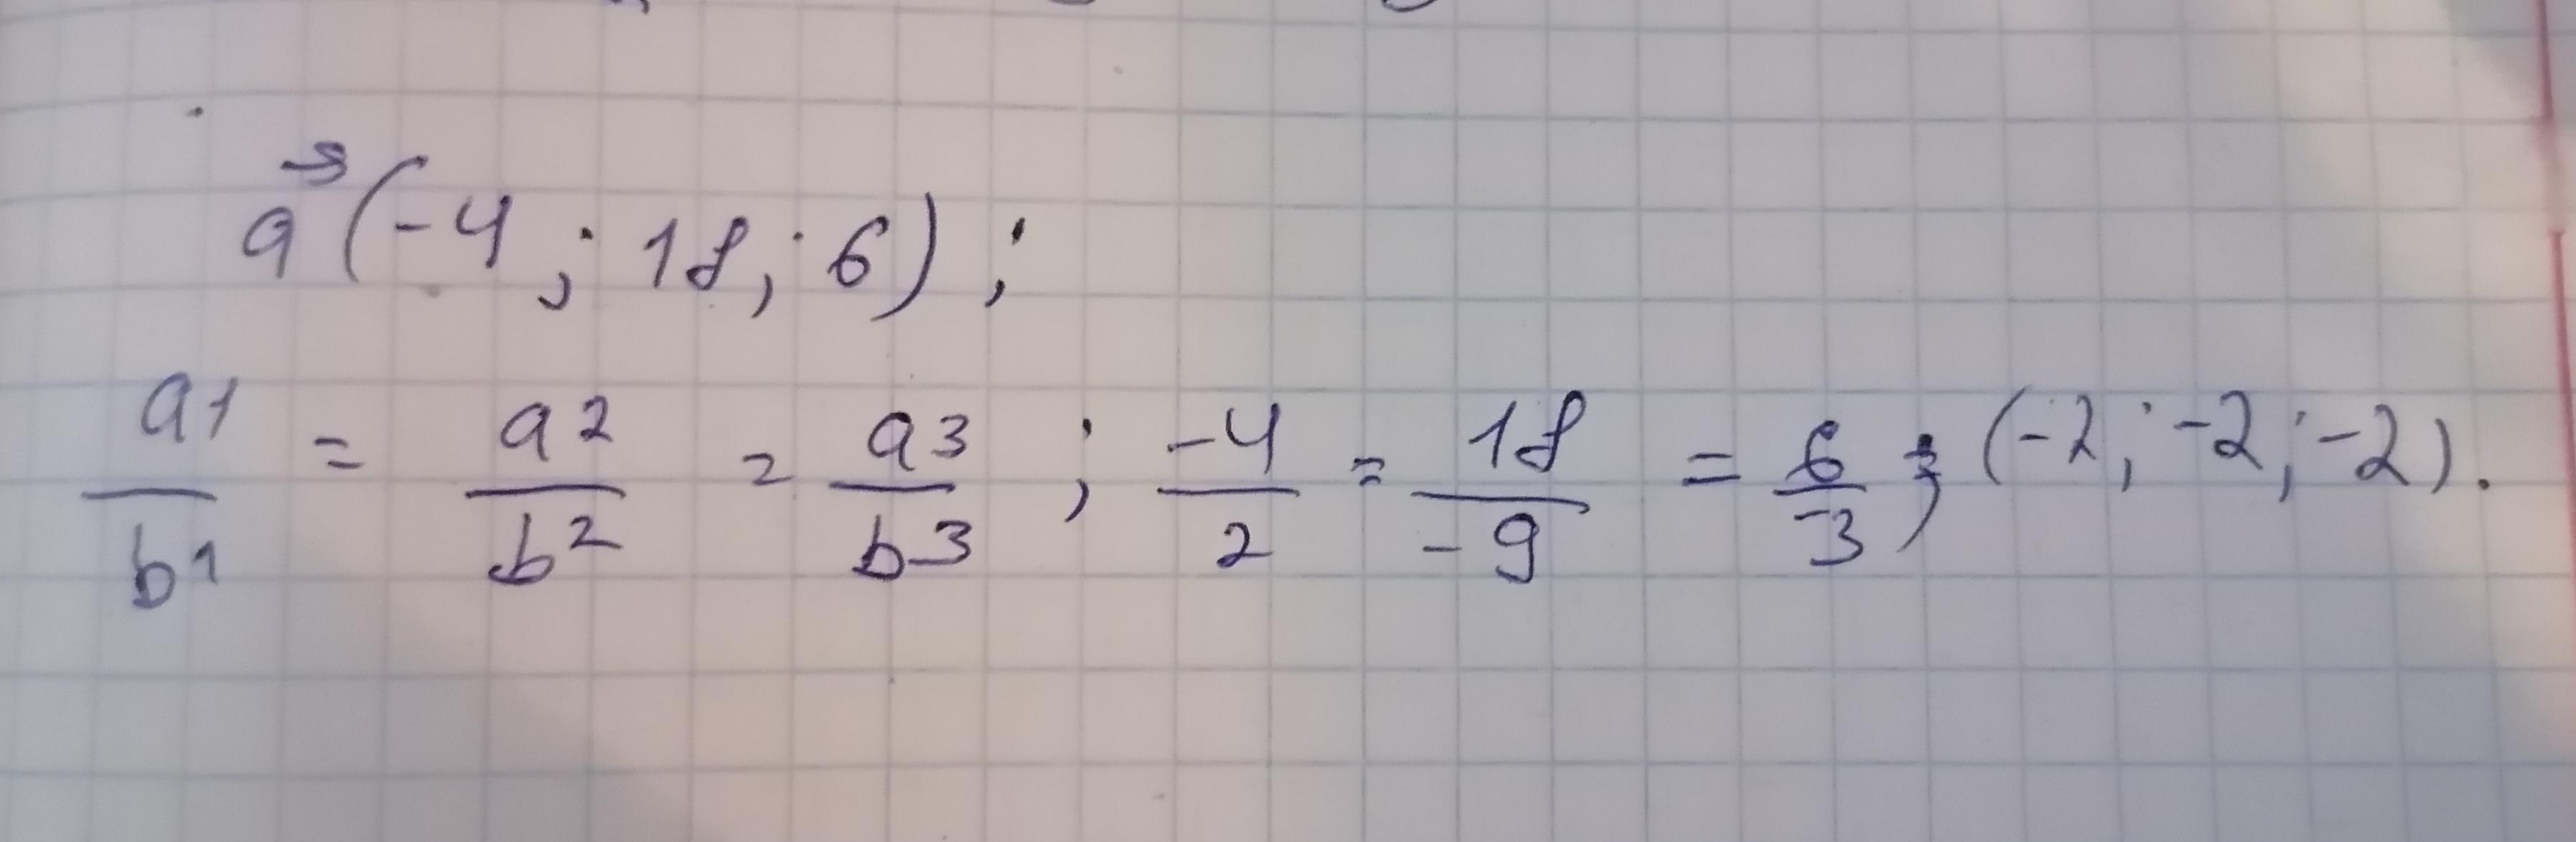 a⃗ (-4; 18; 6);
a1/b1 = a2/b2 = a3/b3; -4/2 = 18/-9 = 6/-3; (-2; -2; -2).